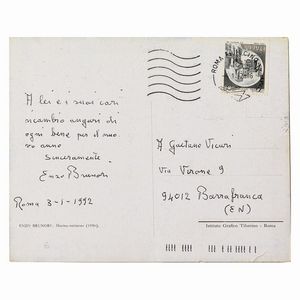 A lei e i suoi cari
ricambio auguri di
ogni bene per il nuo-
vo anno
Sinceramente
Enzo Brunori
Roma 3-1-1992
ENZO BRUNORI:
ROMA
A Gaetano Vicari
Via Verone 9
94012 Barrafranca
(EN)
Istituto Grafico Tiberino - Roma